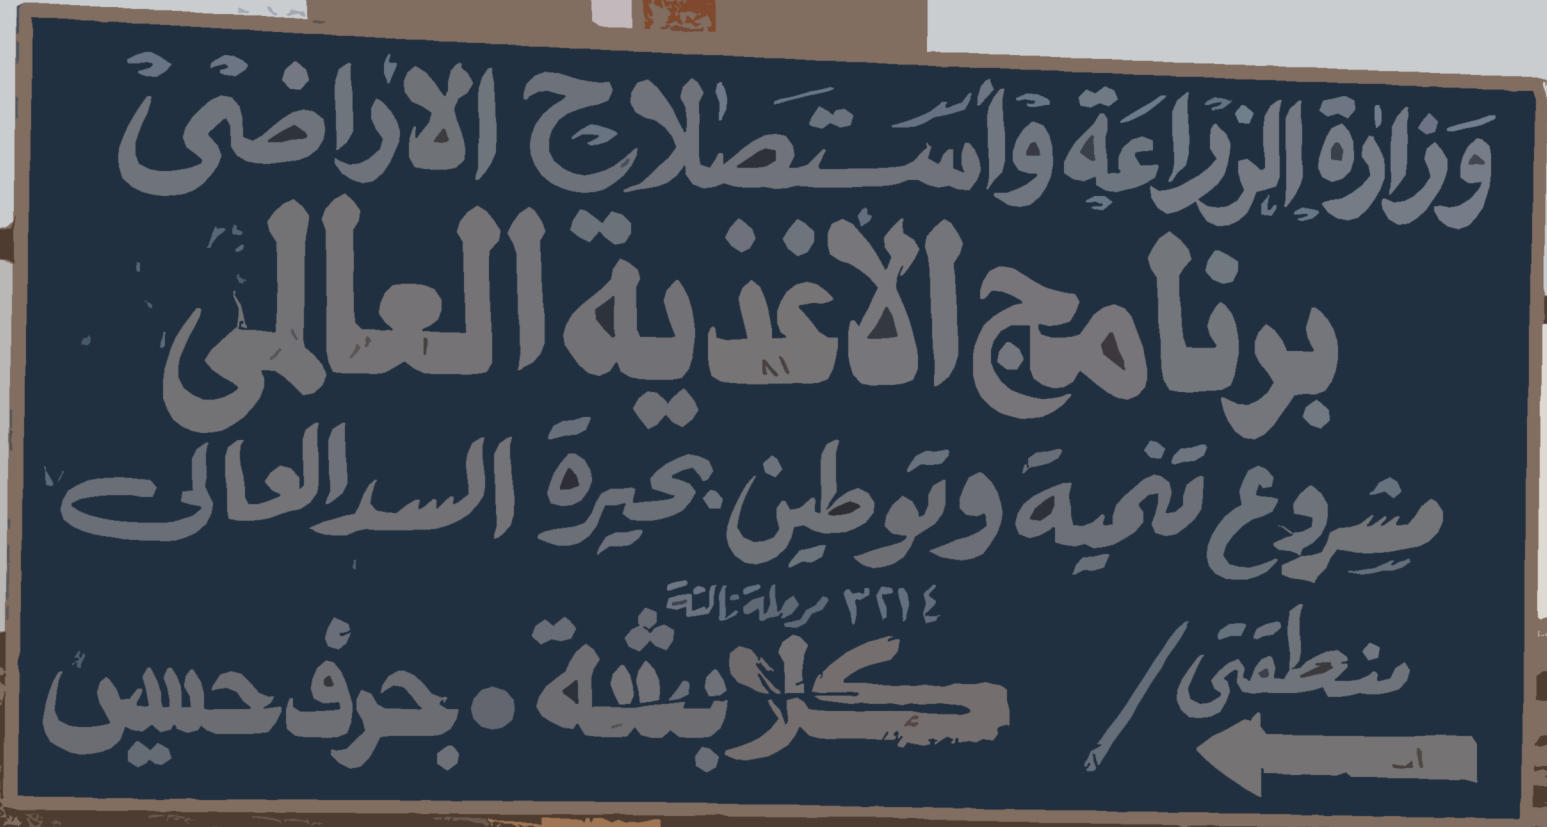 وزارة الزراعة واستصلاح الأراضى
برنامج الأغذية العالمى
مشروع تنمية وتوطين بحيرة السد العالى
٣٢١٤ مرحلة ثالثة
منطقتى / كلابشة • جرف حسين